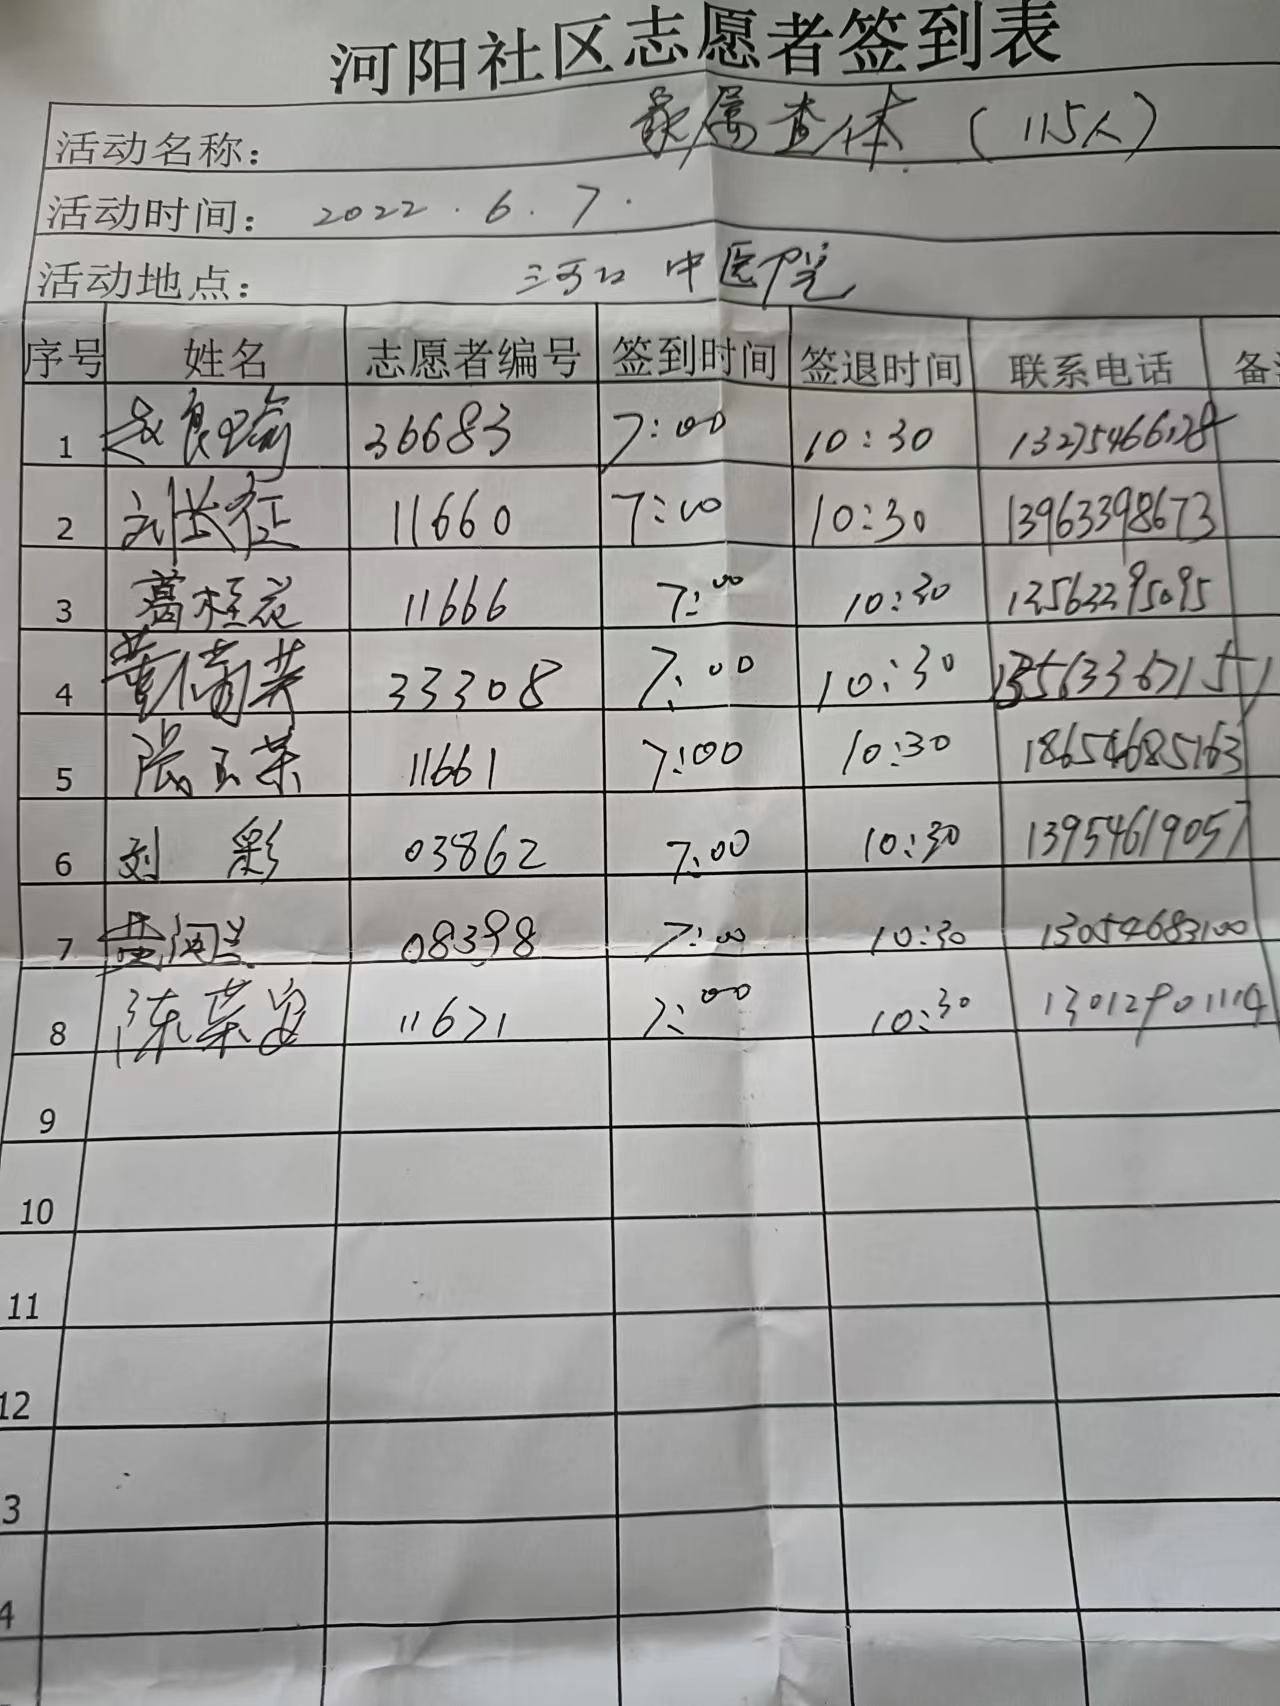 河阳社区志愿者签到表
活动名称： 家属查体（115人）
活动时间： 2022.6.7.
活动地点： 三河口 中医院
序号 姓名 志愿者编号 签到时间 签退时间 联系电话 备
1 36683 7:00 10:30
2 刘长征 11660 7:00 10:30 13963398673
3 葛桂花 11666 7:00 10:30 13563395095
4 33308 7:00 10:30
5 张玉荣 11661 7:00 10:30 18654685163
6 刘 彩 03862 7:00 10:30 13954619057
7 08398 7:00 10:30 13054683100
8 陈荣安 11671 7:00 10:30 13012901114
9
10
11
12
3
4